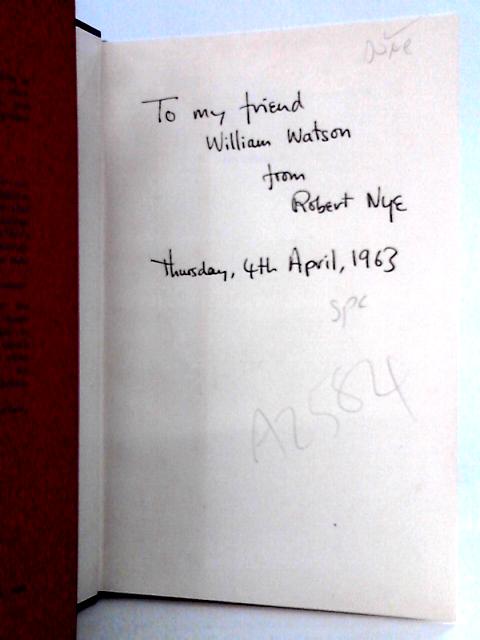 Nye
To my friend
William Watson
from
Robert Nye
Thursday, 4th April, 1963
spc
A2584